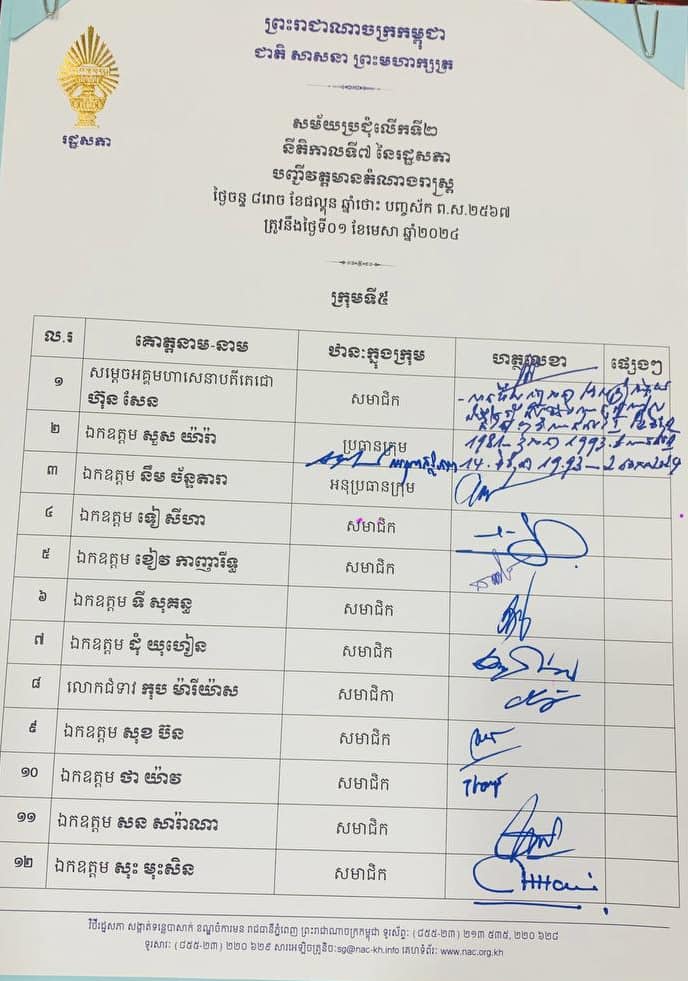 ព្រះរាជាណាចក្រកម្ពុជា
ជាតិ សាសនា ព្រះមហាក្សត្រ
រដ្ឋសភា
សម័យប្រជុំលើកទី២
នីតិកាលទី៧ នៃរដ្ឋសភា
បញ្ជីវត្តមានតំណាងរាស្ត្រ
ថ្ងៃចន្ទ ៨រោច ខែផល្គុន ឆ្នាំថោះ បញ្ចស័ក ព.ស.២៥៦៧
ត្រូវនឹងថ្ងៃទី០១ ខែមេសា ឆ្នាំ២០២៤
ក្រុមទី៥
ល.រ គោត្តនាម-នាម ឋានៈក្នុងក្រុម ហត្ថលេខា ផ្សេងៗ
១ សម្តេចអគ្គមហាសេនាបតីតេជោ
ហ៊ុន សែន សមាជិក
២ ឯកឧត្តម សួស យ៉ារ៉ា ប្រធានក្រុម 1981 1993
៣ ឯកឧត្តម នឹម ច័ន្ទតារា អនុប្រធានក្រុម 14 1993
៤ ឯកឧត្តម ទៀ សីហា សមាជិក
៥ ឯកឧត្តម ខៀវ កាញារីទ្ធ សមាជិក
៦ ឯកឧត្តម ទី សុគន្ធ សមាជិក
៧ ឯកឧត្តម ជុំ យុហៀន សមាជិក
៨ លោកជំទាវ កុប ម៉ារីយ៉ាស សមាជិកា
៩ ឯកឧត្តម សុខ ប៊ន សមាជិក
១០ ឯកឧត្តម ថា យ៉ាវ សមាជិក
១១ ឯកឧត្តម សន សារ៉ាណា សមាជិក
១២ ឯកឧត្តម សុះ មុះសិន សមាជិក
វិថីរដ្ឋសភា សង្កាត់ទន្លេបាសាក់ ខណ្ឌចំការមន រាជធានីភ្នំពេញ ព្រះរាជាណាចក្រកម្ពុជា ទូរស័ព្ទៈ (៨៥៥-២៣) ២១៣ ៥៣៥, ២២០ ៦២៨
ទូរសារៈ (៨៥៥-២៣) ២២០ ៦២៩ សារអេឡិចត្រូនិចៈsg@nac-kh.info គេហទំព័រៈ www.nac.org.kh